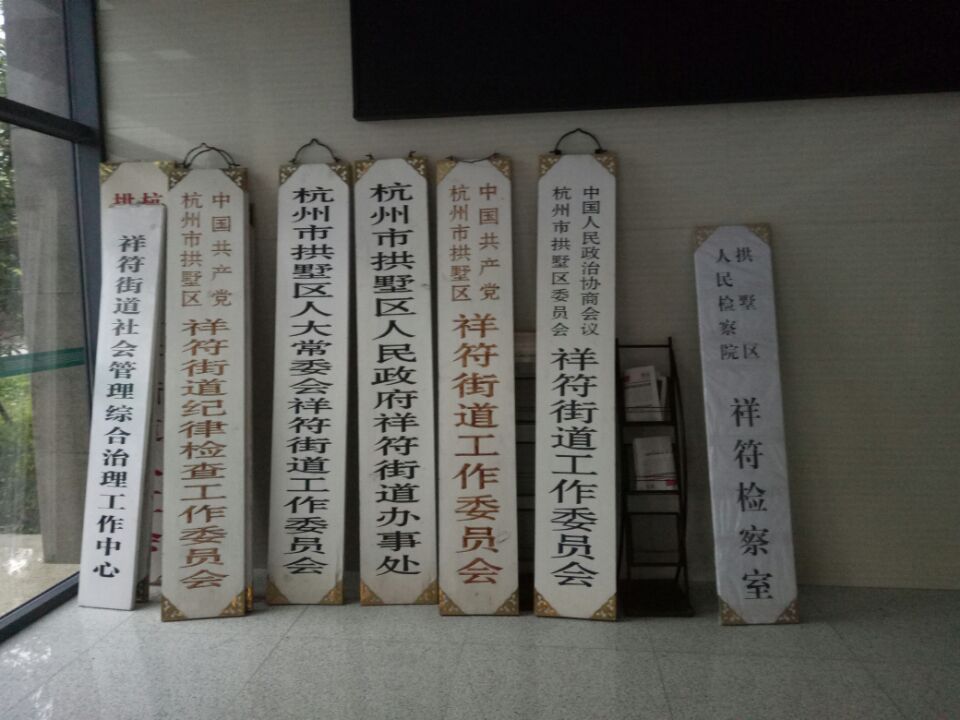 祥符街道社会管理综合治理工作中心
杭
拱
中国共产党
杭州市拱墅区
祥符街道纪律检查工作委员会
杭州市拱墅区人大常委会祥符街道工作委员会
杭州市拱墅区人民政府祥符街道办事处
中国共产党
杭州市拱墅区
祥符街道工作委员会
中国人民政治协商会议
杭州市拱墅区委员会
祥符街道工作委员会
拱墅区
人民检察院
祥符检察室